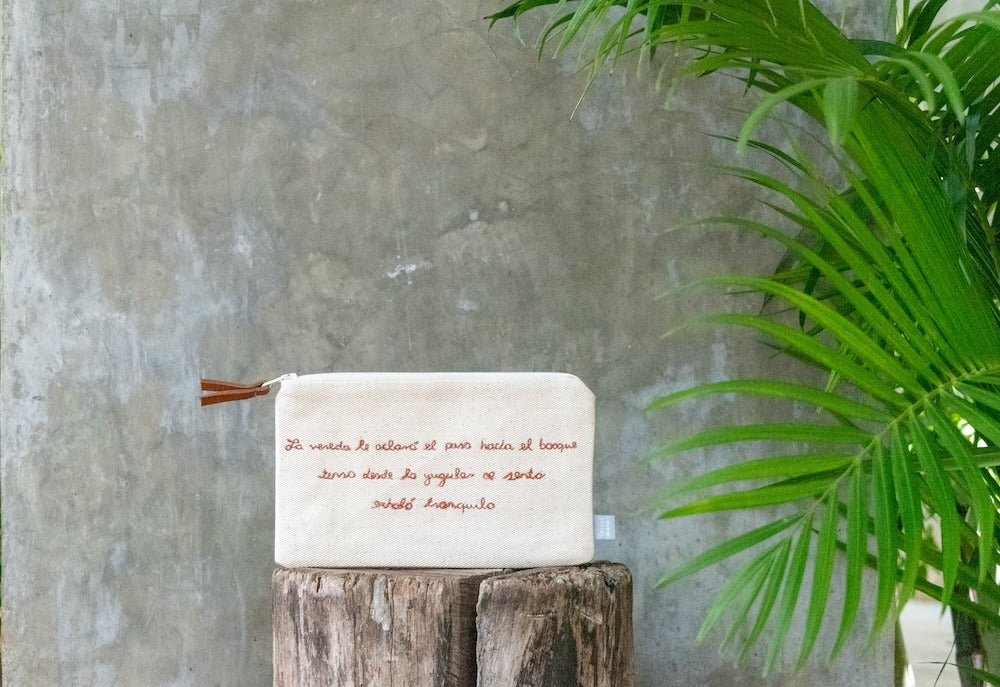 La vereda le aclaró el paso hacia el bosque
terso desde la yugular se sentó
exhaló tranquilo